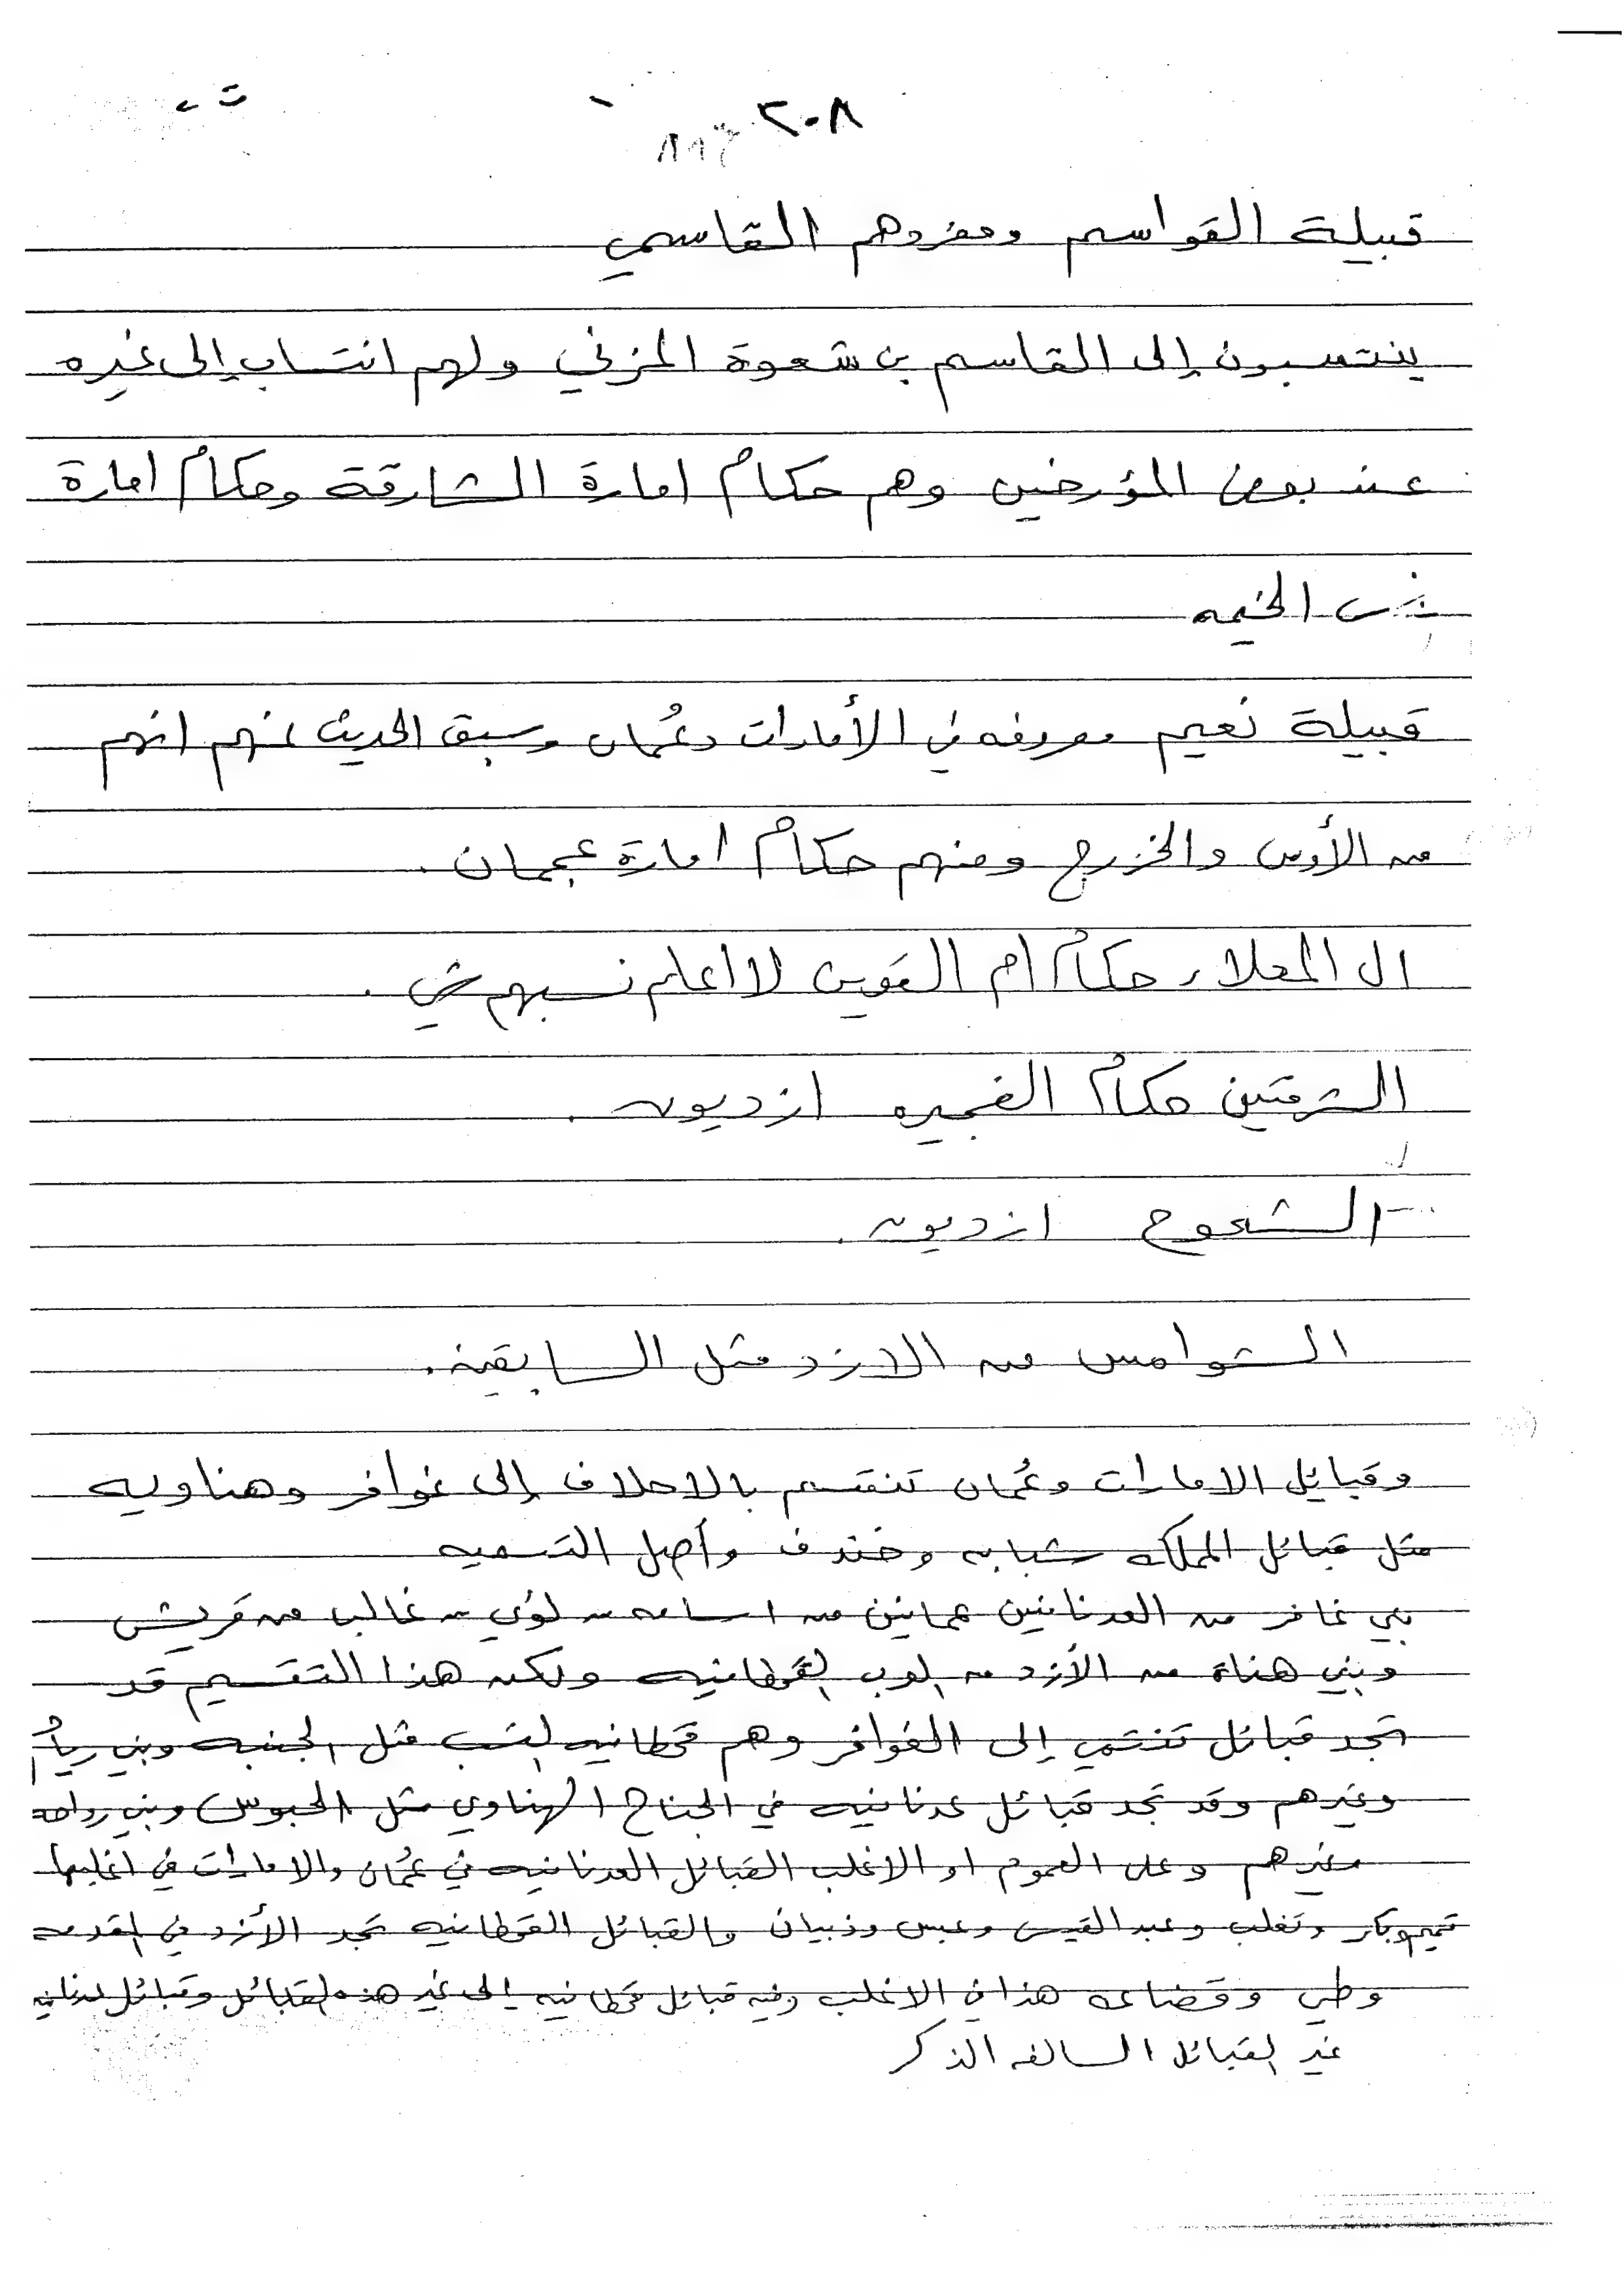 ٢٠٨
قبيلة القواسم ومفردهم القاسمي
ينتسبون إلى القاسم بن شعوة المزني ولهم انتساب إلى غيره
عند بعض المؤرخين وهم حكام امارة الشارقة وحكام امارة
الخيمه
قبيلة نعيم معروفه في الأمارات وعُمان وسبق الحديث عنهم انهم
من الأوس والخزرج ومنهم حكام امارة عجمان .
ال المعلا حكام ام القوين لا اعلم نسبهم .
الشرقين حكام الفجيره ازديون .
الشحوح ازديون .
الشوامس من الازد مثل السابقين .
وقبايل الامارات وعُمان تنقسم بالاحلاف إلى غوافر وهناويه
مثل قبائل المملكه شبابه وخندف وأصل التسميه
بني غافر من العدنانين عمانين من اسامه بن لؤي بن غالب من قريش
وبني هناة من الأزد من العرب القحطانيه ولكن هذا التقسيم قد
تجد قبائل تنتمي إلى الغوافر وهم قحطانيه النسب مثل الجنبه وبني ريام
وغيرهم وقد تجد قبائل عدنانيه في الجناح الهناوي مثل الحبوس وبني رواحه
وغيرهم وعلى العموم او الاغلب القبائل العدنانيه في عُمان والامارات في اغلبها
تميم وبكر وتغلب وعبد القيس وعبس وذبيان والقبائل القحطانيه تجد الأزد في المقدمه
وطي وقضاعه هذا في الاغلب وفيه قبائل قحطانيه إلى غير هذه القبائل وقبائل عدنانيه
غير القبائل السالفه الذكر